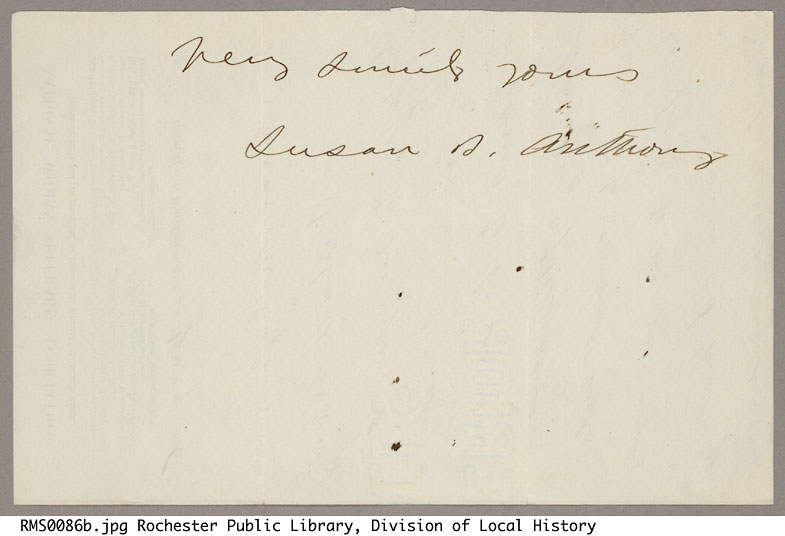 Very sincerely yours
Susan B. Anthony
RMS0086b.jpg Rochester Public Library, Division of Local History